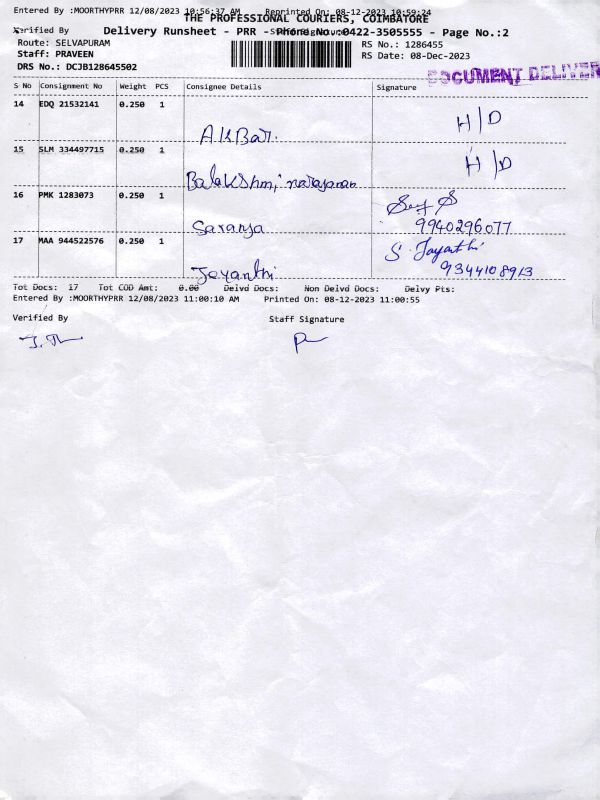 Entered By :MOORTHYPRR 12/08/2023 10:56:37 AM Reprinted On: 08-12-2023 10:59:24
THE PROFESSIONAL COURIERS, COIMBATORE
Verified By Staff Signature
Delivery Runsheet - PRR - Phone No.:0422-3505555 - Page No.:2
Route: SELVAPURAM RS No.: 1286455
Staff: PRAVEEN RS Date: 08-Dec-2023
DRS No.: DCJB128645502
DOCUMENT DELIVER
S No Consignment No Weight PCS Consignee Details Signature
14 EDQ 21532141 0.250 1
AKBar. H/D
15 SLM 334497715 0.250 1
Balakshmi narayanan H/D
16 PMK 1283073 0.250 1
Saranya 9940296077
17 MAA 944522576 0.250 1 S. Jayanthi
Jeyanthi 9344108913
Tot Docs: 17 Tot COD Amt: 0.00 Delvd Docs: Non Delvd Docs: Delvy Pts:
Entered By :MOORTHYPRR 12/08/2023 11:00:10 AM Printed On: 08-12-2023 11:00:55
Verified By Staff Signature